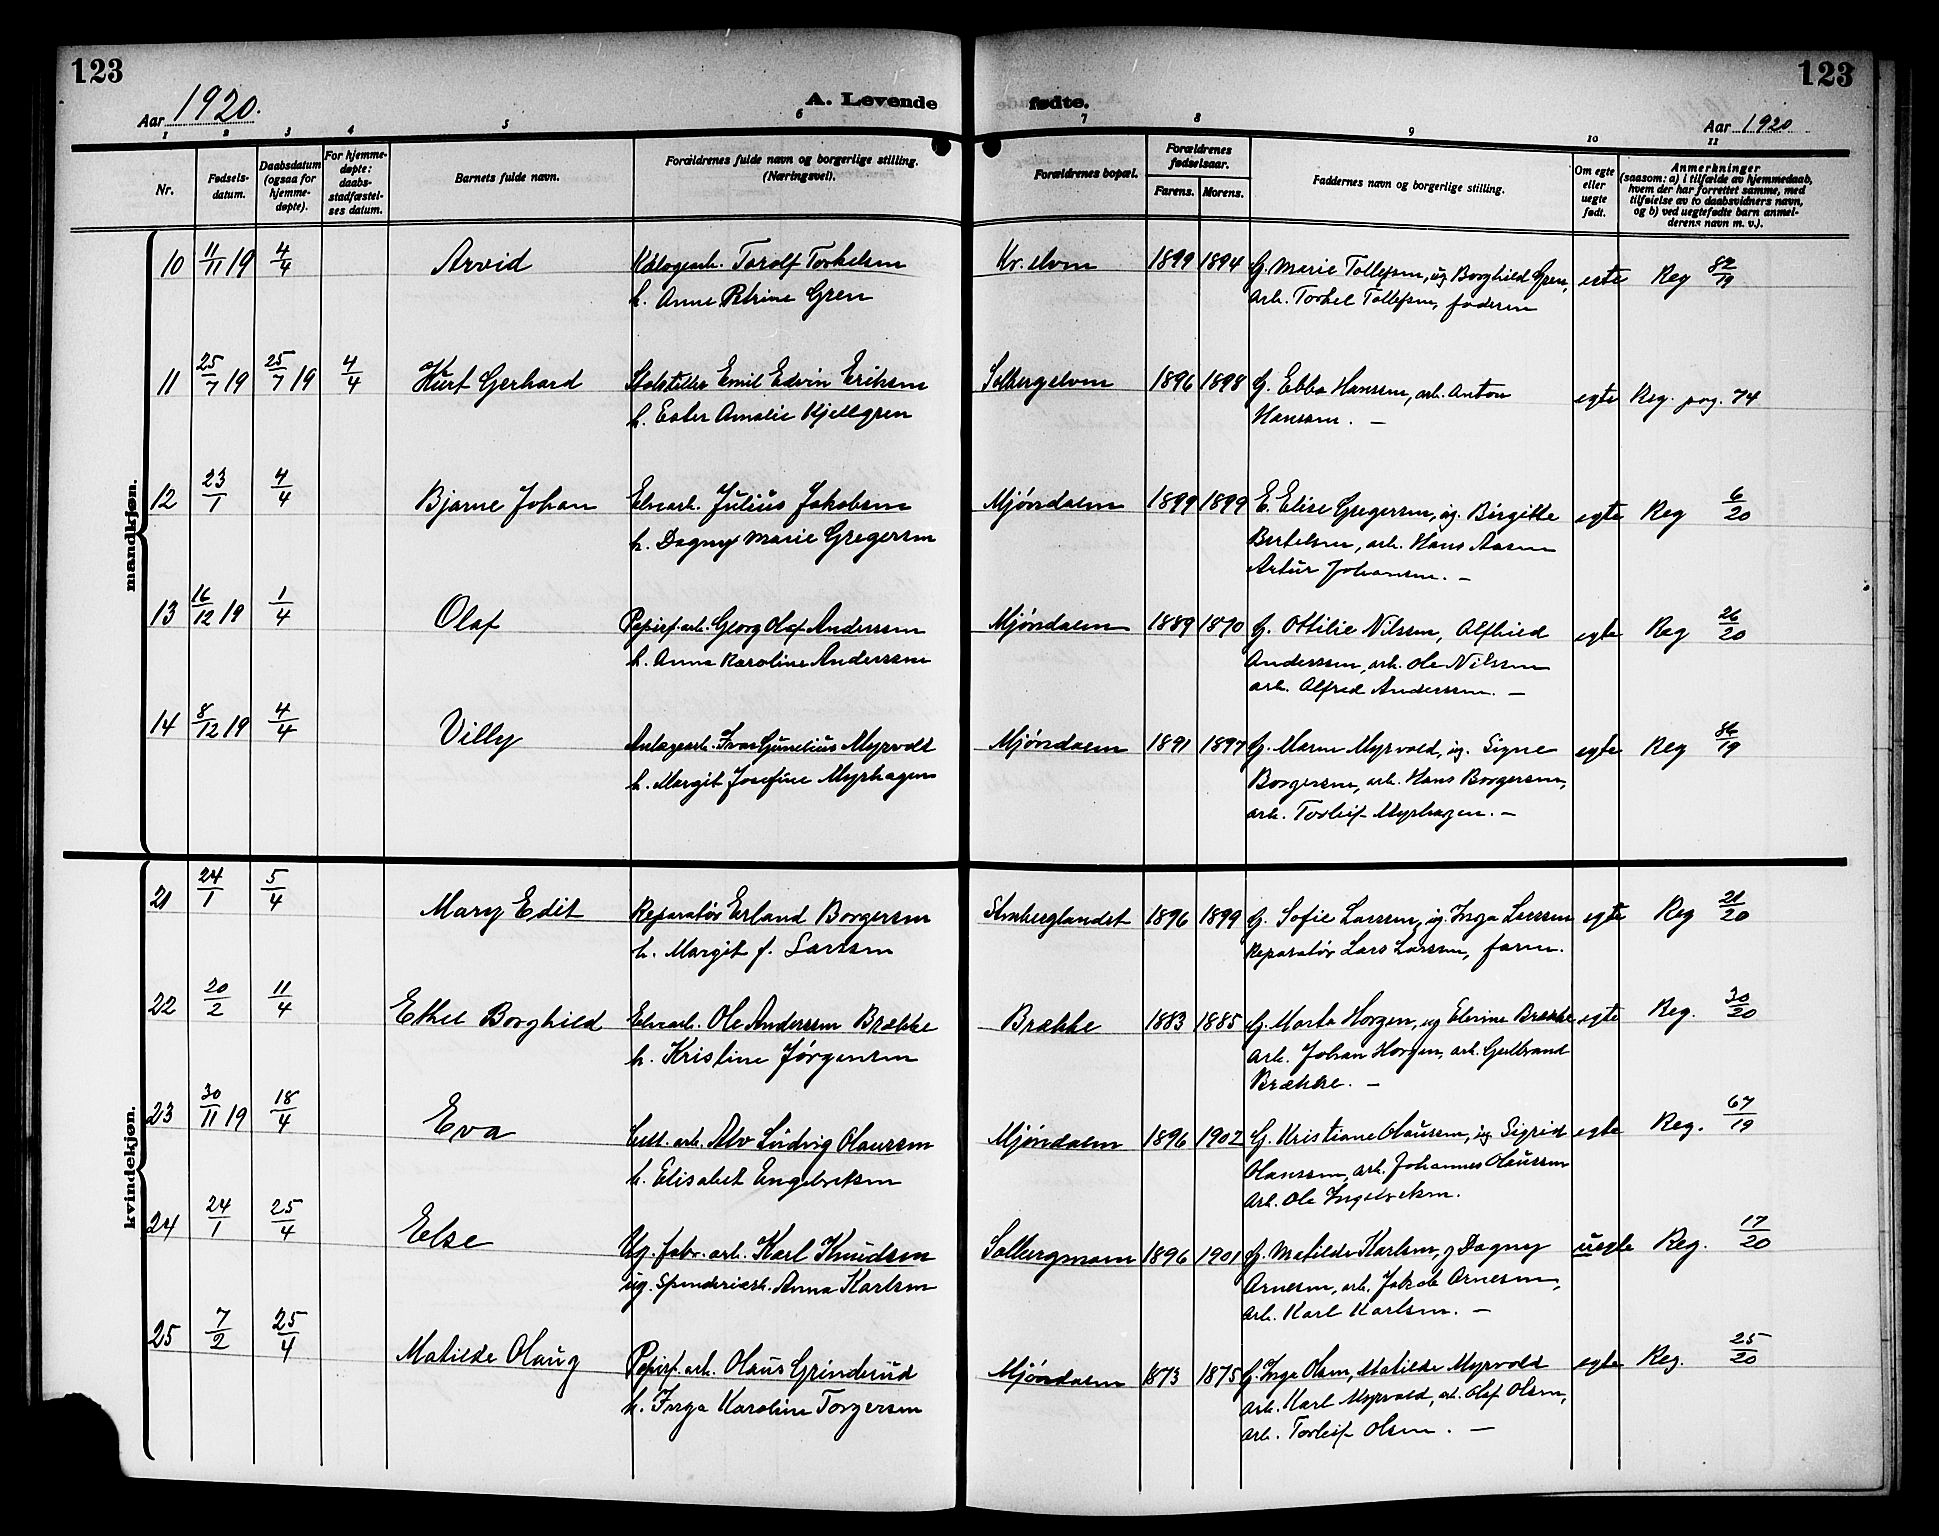 123
123
Aar 1920.
A. Levende
fødte.
Aar 1920
1 2 3 4 5 6 7 8 9 10 11
Nr.
Fødsels-
datum.
Daabsdatum
(ogsaa for
hjemme-
døpte).
For hjemme-
døpte:
daabs-
stadfæstel-
ses datum.
Barnets fulde navn.
Forældrenes fulde navn og borgerlige stilling.
(Næringsvei).
Forældrenes bopæl.
Forældrenes
fødselsaar.
Farens. Morens.
Faddernes navn og borgerlige stilling.
Om egte
eller
uegte
født.
Anmerkninger
(saasom: a) i tilfælde av hjemmedaab,
hvem der har forrettet samme, med
tilføielse av to daabsvidners navn,
og b) ved uegtefødte barn anmel-
derens navn m. v.).
mandkjøn.
10 11/11 19 4/4 Arvid Torolf Torkelsen Kr. elven 1899 1894 G. Marie Tollefsen, ug Borghild Gren, egte Reg 82/19
h. Anne Petrine Gren arb. Torkel Tollefsen, faderen
11 25/7 19 25/7 19 4/4 Kurt Gerhard Emil Edvin Eriksen Solbergelven 1896 1898 G. Ebba Hanssen, arb. Anton egte Reg. pag. 74
h. Ester Amalie Kjellgren Hanssen. —
12 23/1 4/4 Bjarne Johan Elvearb. Julius Jakobsen Mjøndalen 1899 1899 E. Elise Gregersen, ug. Birgitte egte Reg 6/20
h. Dagny Marie Gregersen Bertelsen, arb. Hans Aasen
Artur Johansen. —
13 16/12 19 1/4 Olaf Papirf. arb. Georg Olaf Anderssen Mjøndalen 1889 1890 G. Ottilie Nilssen, Alfhild egte Reg 26/20
h. Anna Karoline Anderssen Anderssen, arb. Ole Nilssen
arb. Alfred Anderssen. —
14 8/12 19 4/4 Villy Anlægsarb. Ivar Gunelius Myrvold Mjøndalen 1891 1897 G. Maren Myrvold, ug. Signe egte Reg 86/19
h. Margit Josefine Myrhagen Borgersen, arb. Hans Borgersen,
arb. Torleif Myrhagen. —
kvindekjøn.
21 24/1 5/4 Mary Edit Reparatør Erland Borgersen Stenberglandet 1896 1899 G. Sofie Larssen, ug. Inga Larssen egte Reg 21/20
h. Margit f. Larssen Reparatør Lars Larssen, faren.
22 20/2 11/4 Ethel Borghild Elvearb. Ole Anderssen Brække Brække 1883 1885 G. Marta Horgen, ug Elerine Brække egte Reg. 30/20
h. Kristine Jørgensen arb. Johan Horgen, arb. Gulbrand
Brække. —
23 30/11 19 18/4 Eva Cell. arb. Alv Ludvig Olaussen Mjøndalen 1896 1902 G. Kristiane Olaussen, ug Sigrid egte Reg. 67/19
h. Elisabet Engebretsen Olaussen, arb. Johannes Olaussen
arb. Ole Ingebretsen.
24 24/1 25/4 Else Ug. fabr. arb. Karl Knudsen Solbergmoen 1896 1901 G. Matilde Karlsen, g Dagny uegte Reg. 17/20
ug. Spinderiarb. Anna Karlsen Arnesen, arb. Jakob Arnesen,
arb. Karl Karlsen. —
25 7/2 25/4 Matilde Olaug Papirf. arb. Olaus Grinderud Mjøndalen 1873 1875 G. Inga Olsen, Matilde Myrvold egte Reg. 25/20
h. Inga Karoline Torgersen arb. Karl Myrvold, arb. Olaf Olsen,
arb. Torleif Olsen. —